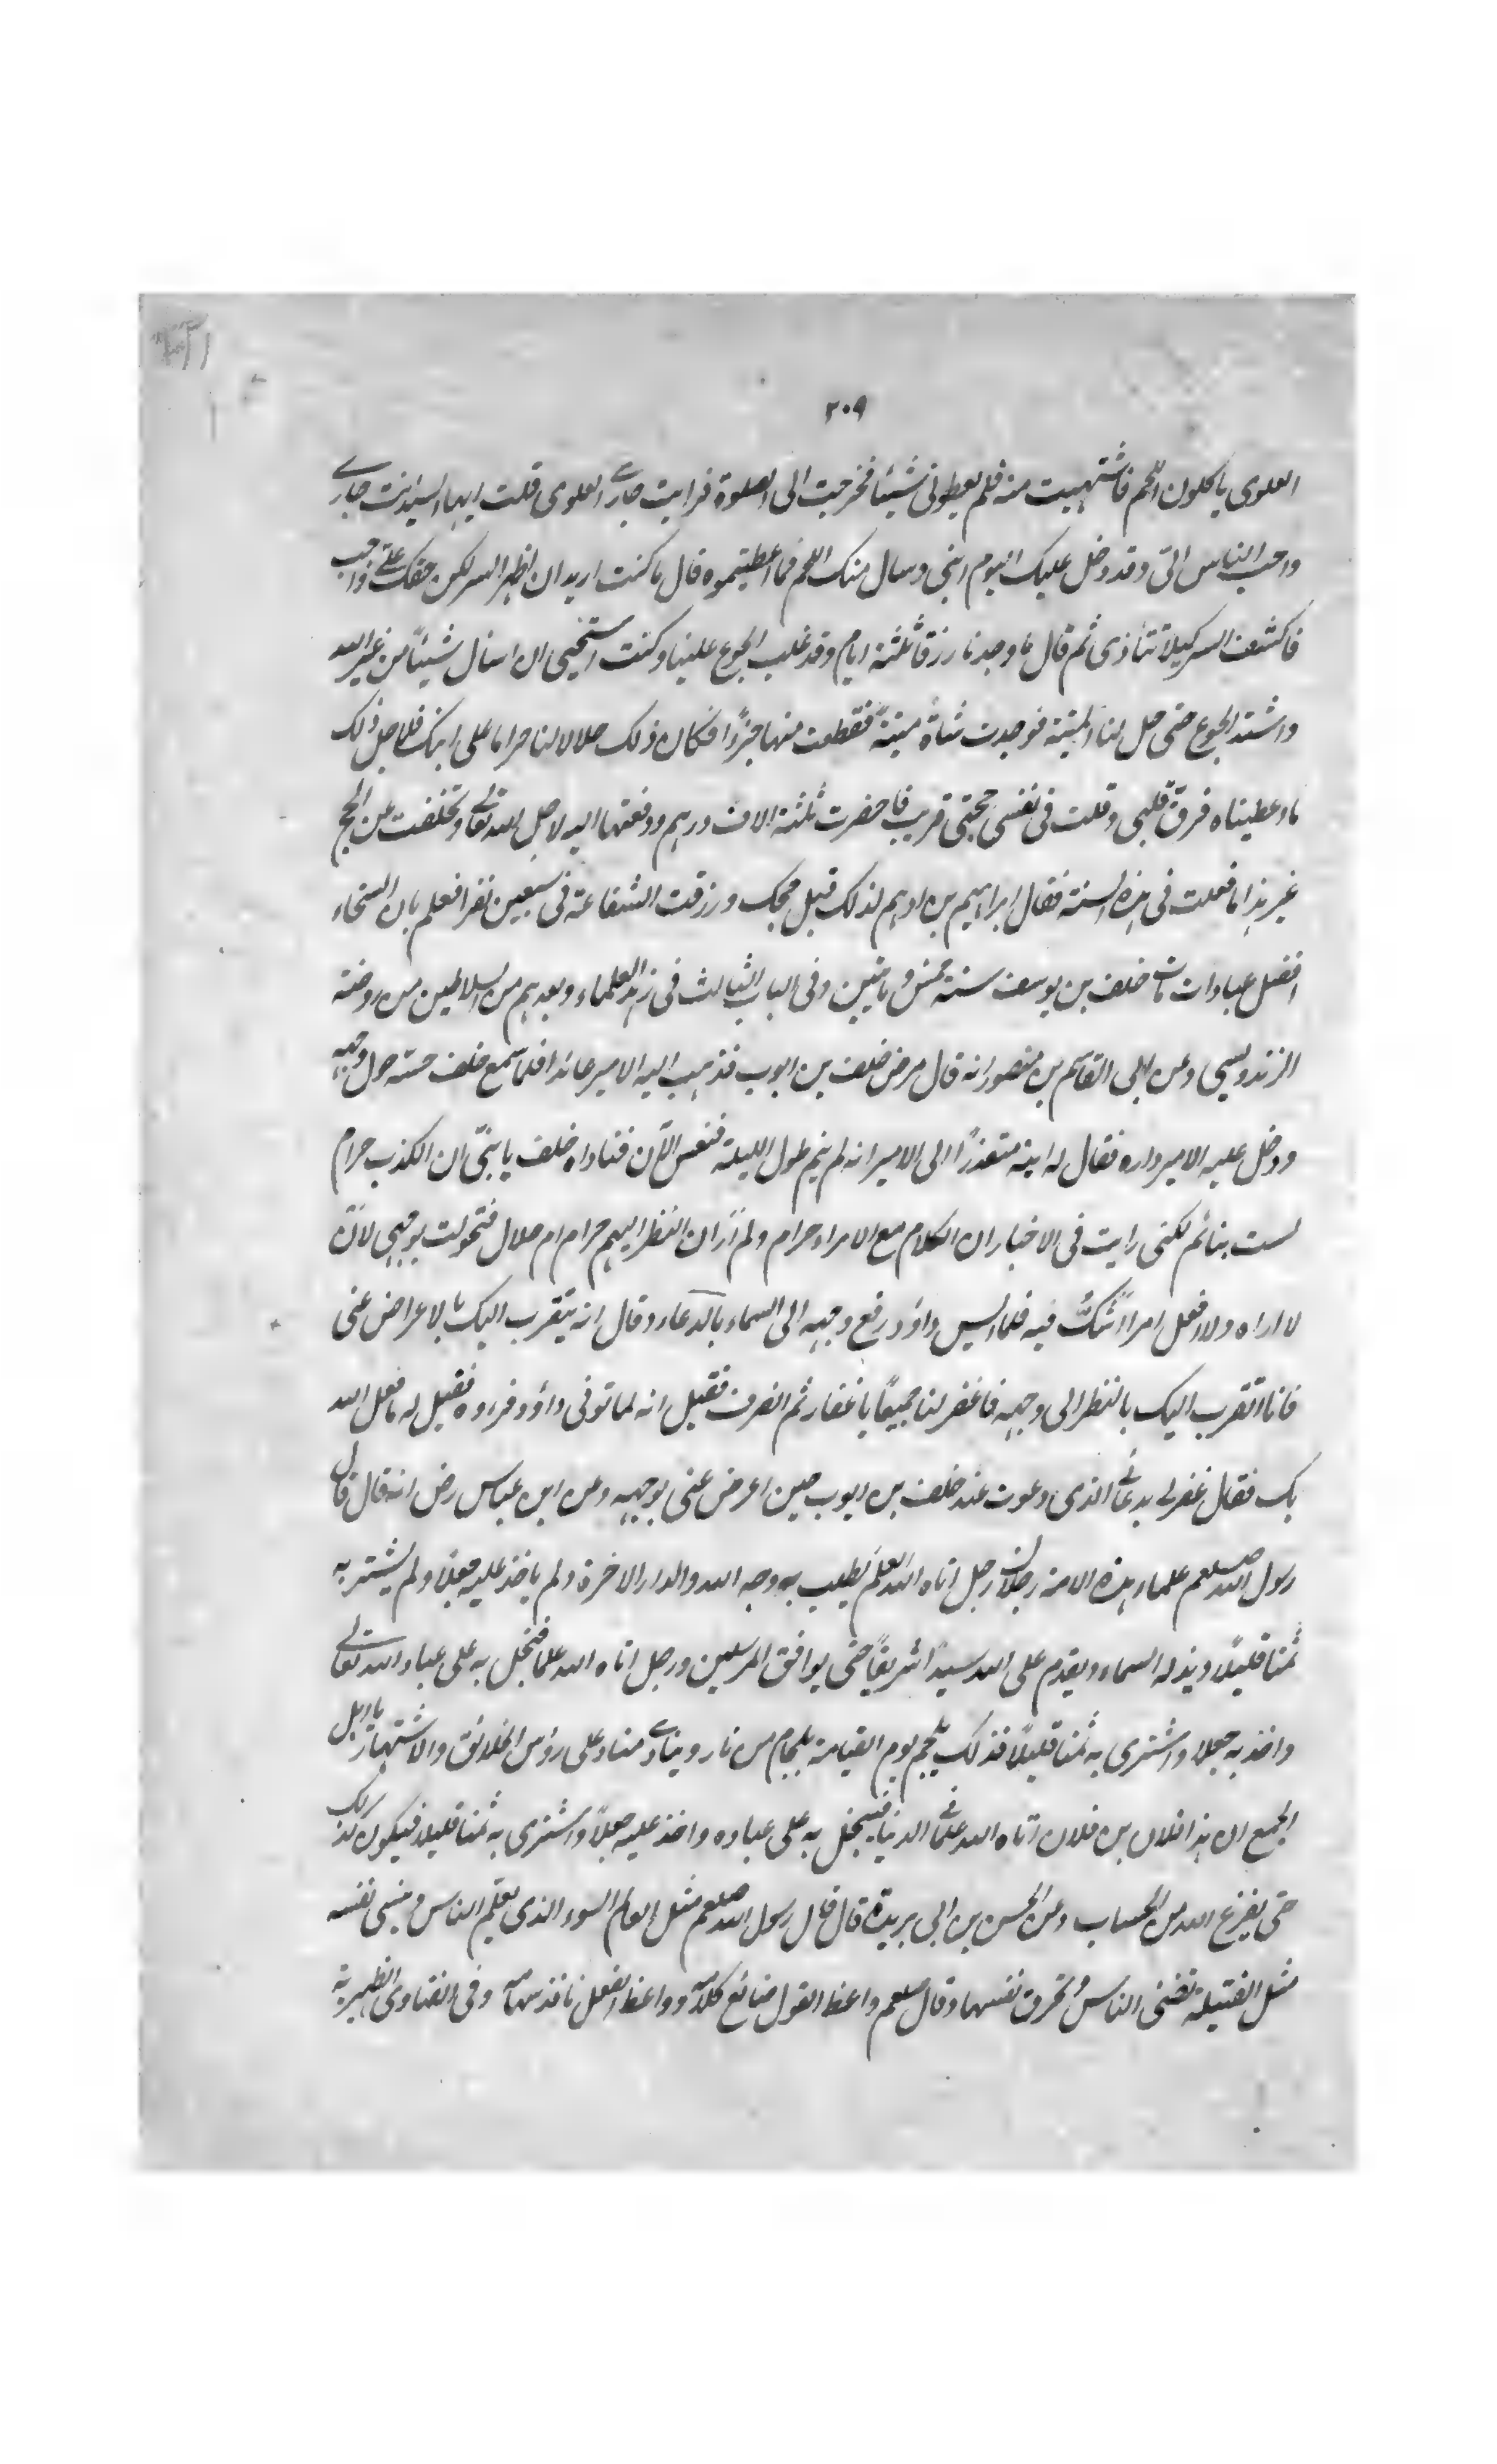 ٢٠٩
العلوى ياكلون اللحم فاشتهيت منه فلم يعطونى شيئا فخرجت الى الصلوة فرايت جارى العلوى قلت ايها السيد انت جارى
واحب الناس الىّ وقد دخل عليك اليوم ابنى وسال منك اللحم فما اعطيتموه قال ما كنت اريد ان اظهر السر لكن حقك علىّ واجب
فاكشف السر كيلا تتاذى ثم قال ما وجدنا رزقا ثلثة ايام وقد غلب الجوع علينا وكنت استحيى ان اسال شيئا من غير الله
واشتد الجوع حتى حل لنا الميتة فوجدت شاة ميتة فقطعت منها جزءًا فكان ذلك حلالا لنا حراما على ابنك فلاجل ذلك
ما اعطيناه فرق قلبى وقلت فى نفسى حجتى قريب فاحضرت ثلثة الاف درهم ودفعتها اليه لاجل الله تعالى وتخلفت عن الحج
غير هذا ما فعلت فى هذه السنة فقال ابراهيم بن ادهم لذلك قبل حجك ورزقت الشفاعة فى سبعين نفرا فعلم بان السخاء
افضل عبادات مات خلف بن يوسف سنة خمس و مائتين وفى الباب الثالث فى زهد العلماء وبعدهم من السلاطين من روضة
الزندويسى وعن ابى القاسم بن منصور انه قال مرض خلف بن ايوب فذهب اليه الامير عائدا فلما سمع خلف حسّه حول وجهه
ودخل عليه الامير داره فقال له ابنه متعذرًا الى الامير انه لم ينم طول الليلة فنعس الآن فناداه خلف يا بنىّ ان الكذب حرام
لست بنائم لكنى رايت فى الاخبار ان الكلام مع الامراء حرام ولم أرَ ان النظر اليهم حرام ام حلال فتحولت بوجهى لانّه
لا اراه ولا افعل امرًا اشكّ فيه فلما ايس داؤد رفع وجهه الى السماء بالدعاء وقال انه يتقرب اليك بالاعراض عنى
فانا اتقرب اليك بالنظر الى وجهه فاغفر لنا جميعًا يا غفار ثم انصرف فقيل انه لما توفى داؤد فراوه فقيل له ما فعل الله
بك فقال غفر لى بدعائى الذى دعوت عند خلف بن ايوب حين اعرض عنى بوجهه وعن ابن عباس رض انه قال قال
رسول الله صلعم علماء هذه الامة رجلان رجل اتاه الله العلم يطلب به وجه الله والدار الاخرة ولم ياخذ عليه جعلا ولم يشتر به
ثمنا قليلًا ويذله السماء ويقدم على الله سيدًا شريفًا حتى يوافق المرسلين ورجل اتاه الله علما فبخل به على عباد الله تعالى
واخذ به جعلا واشترى به ثمنا قليلًا فذلك يلجم يوم القيامة بلجام من نار وينادى مناد على رؤس الخلائق والاشتهار يا اهل
الجمع ان هذا فلان بن فلان اتاه الله علما فى الدنيا فيبخل به على عباده واخذ عليه جعلًا واشترى به ثمنا قليلا فيكون كذلك
حتى يفرغ الله من الحساب وعن الحسن بن ابى بريدة قال قال رسول الله صلعم مثل العالم السوء الذى يعلم الناس وينسى نفسه
مثل الفتيلة تضئ الناس وتحرق نفسها وقال صلعم واعظ القول ضائع كلامه وواعظ الفعل نافذ سهامه وفى الفتاوى الظهيرية